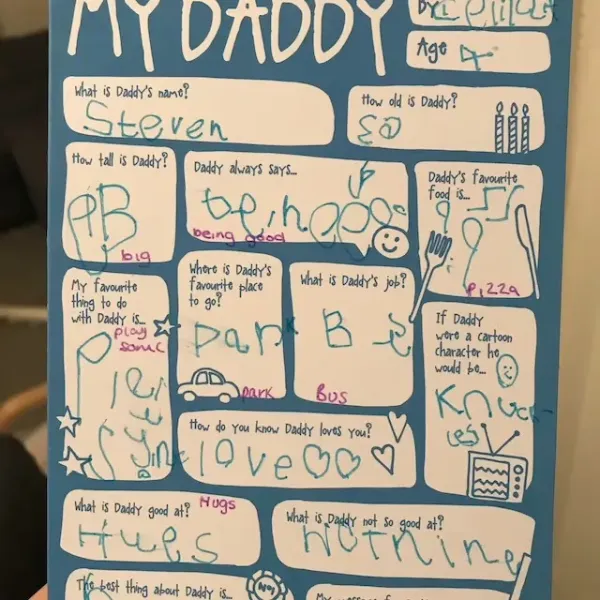 MY DADDY
By:
Age 4
What is Daddy's name?
Steven
How old is Daddy?
How tall is Daddy?
big
Daddy always says...
being good
Daddy's favourite
food is...
Pizza
My favourite
thing to do
with Daddy is...
play
sonic
Where is Daddy's
favourite place
to go?
park
park
What is Daddy's job?
Bus
If Daddy
were a cartoon
character he
would be...
Knuck-
les
How do you know Daddy loves you?
love
What is Daddy good at?
Hugs
Hugs
What is Daddy not so good at?
Nothing
The best thing about Daddy is...